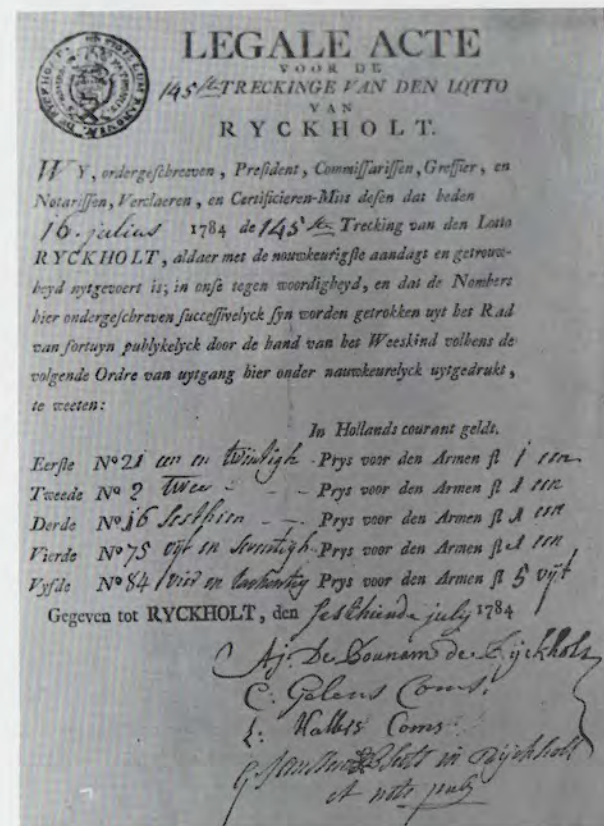 LEGALE ACTE
VOOR DE
145ste TRECKINGE VAN DEN LOTTO
VAN
RYCKHOLT.
WY, ordergeschreeven, President, Commissarissen, Greffier, en
Notarissen, Verclaeren, en Certificieren-Mits desen dat heden
16. julius 1784 de 145ste Trecking van den Lotto
RYCKHOLT, aldaer met de nouwkeurigste aandagt en getrouw-
heyd uytgevoert is; in onse tegen woordigheyd, en dat de Nombers
hier ondergeschreven successivelyck syn worden getrokken uyt het Rad
van fortuyn publykelyck door de hand van het Weeskind volgens de
volgende Ordre van uytgang hier onder nauwkeurelyck uytgedrukt,
te weeten:
In Hollands courant geldt.
Eerste No 21 een en twintigh - Prys voor den Armen fl 1 een
Tweede No 2 twee - - - Prys voor den Armen fl 1 een
Derde No 16 sesthien - - Prys voor den Armen fl 1 een
Vierde No 75 vijf en seventigh - Prys voor den Armen fl 1 een
Vyfde No 84 vier en tachentig Prys voor den Armen fl 5 vijf
Gegeven tot RYCKHOLT, den sesthiende july 1784
Aj. De Dounam de Ryckholt
C: Gelens Coms.
L: Kallis Coms:
in Ryckholt
et nots pub